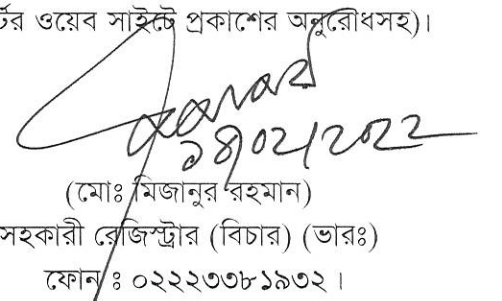 র্টর ওয়েব সাইটে প্রকাশের অনুরোধসহ)।
১৪/০২/২০২২
(মোঃ মিজানুর রহমান)
সহকারী রেজিস্ট্রার (বিচার) (ভারঃ)
ফোন ঃ ০২২২৩৩৮১৯৩২।